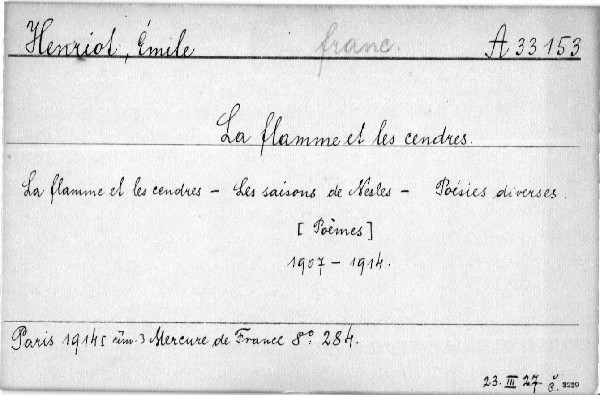 Henriot, Émile franc. A 33153
La flamme et les cendres.
La flamme et les cendres - Les saisons de Nesles - Poésies diverses.
[Poèmes]
1907 - 1914.
Paris 1914 [řím.] Mercure de France 8° 284.
23. III 27